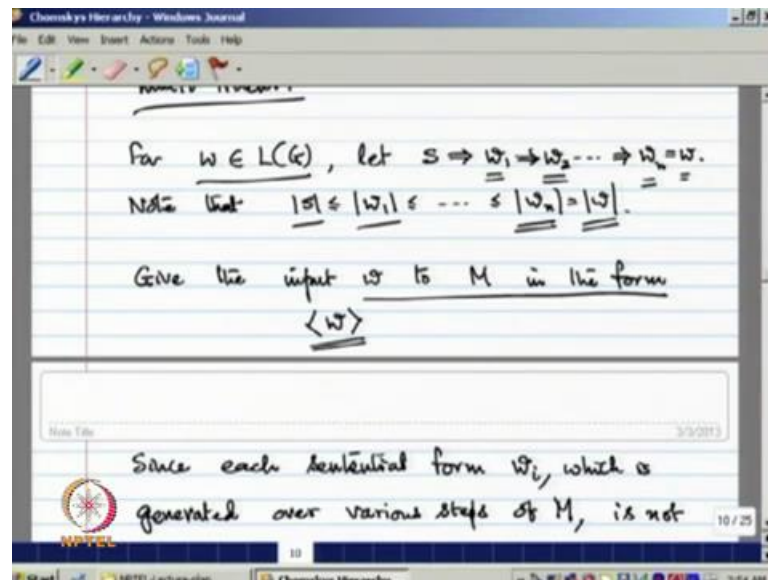 Chomskys Hierarchy - Windows Journal
File Edit View Insert Actions Tools Help
For w ∈ L(G), let S ⇒ w₁ ⇒ w₂ --- ⇒ wₙ = w.
Note that |S| ≤ |w₁| ≤ --- ≤ |wₙ| = |w|.
Give the input w to M in the form
⟨w⟩
Note Title
3/3/2013
Since each sentential form wᵢ, which is
generated over various steps of M, is not
10 / 25
NPTEL
10
Start
NPTEL-Lecture-plan
Chomskys Hierarchy